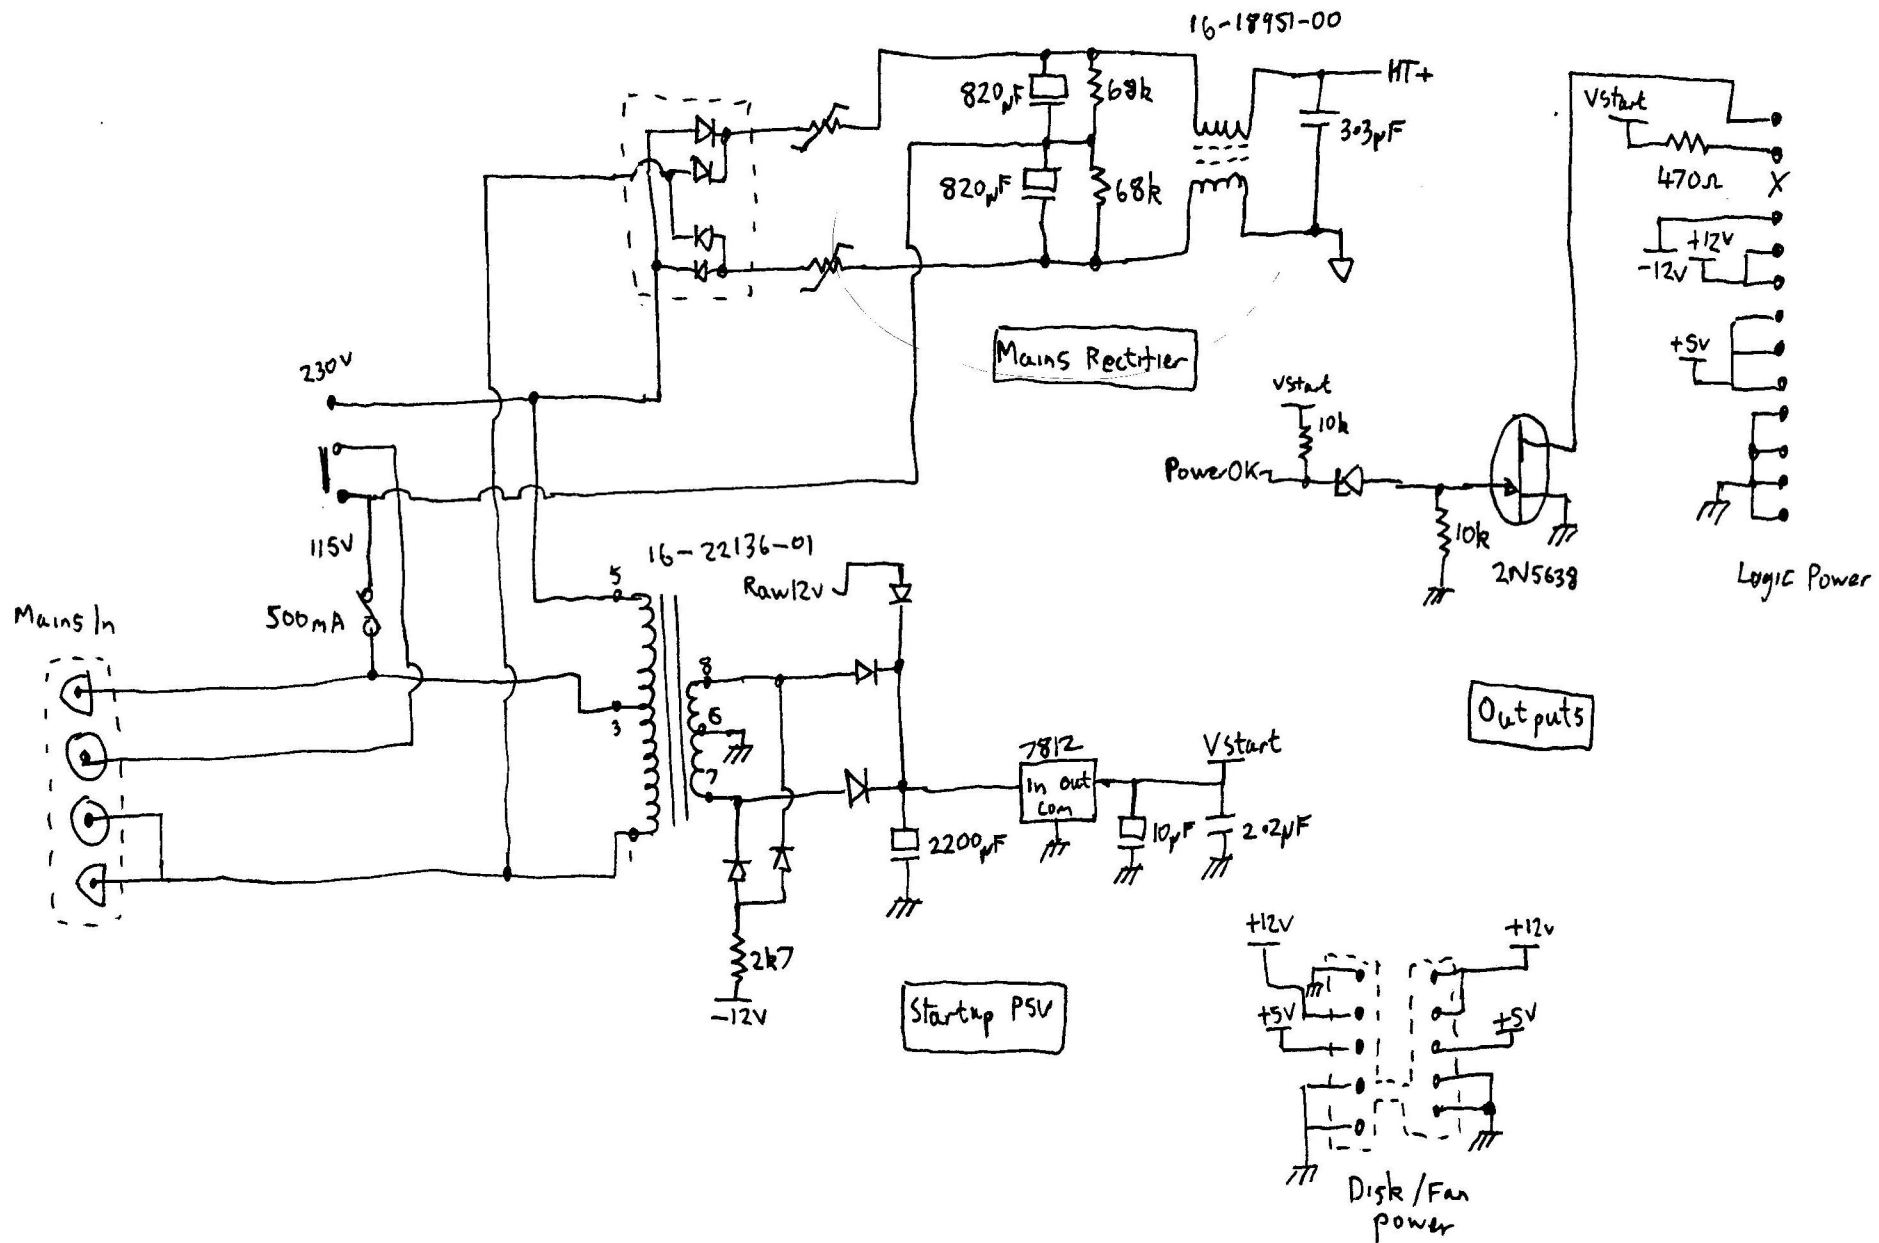 16-18951-00
HT+
820µF
68k
3.3µF
820µF
68k
Vstart
470Ω
X
-12V
+12V
+5V
Logic Power
Mains Rectifier
230V
115V
500mA
Mains In
Vstart
10k
PowerOK
10k
2N5638
Outputs
16-22136-01
Raw12V
5
3
1
8
6
7
7812
In Out
Com
Vstart
2200µF
10µF
2.2µF
2k7
-12V
Startup PSU
+12V
+5V
+12V
+5V
Disk/Fan
power